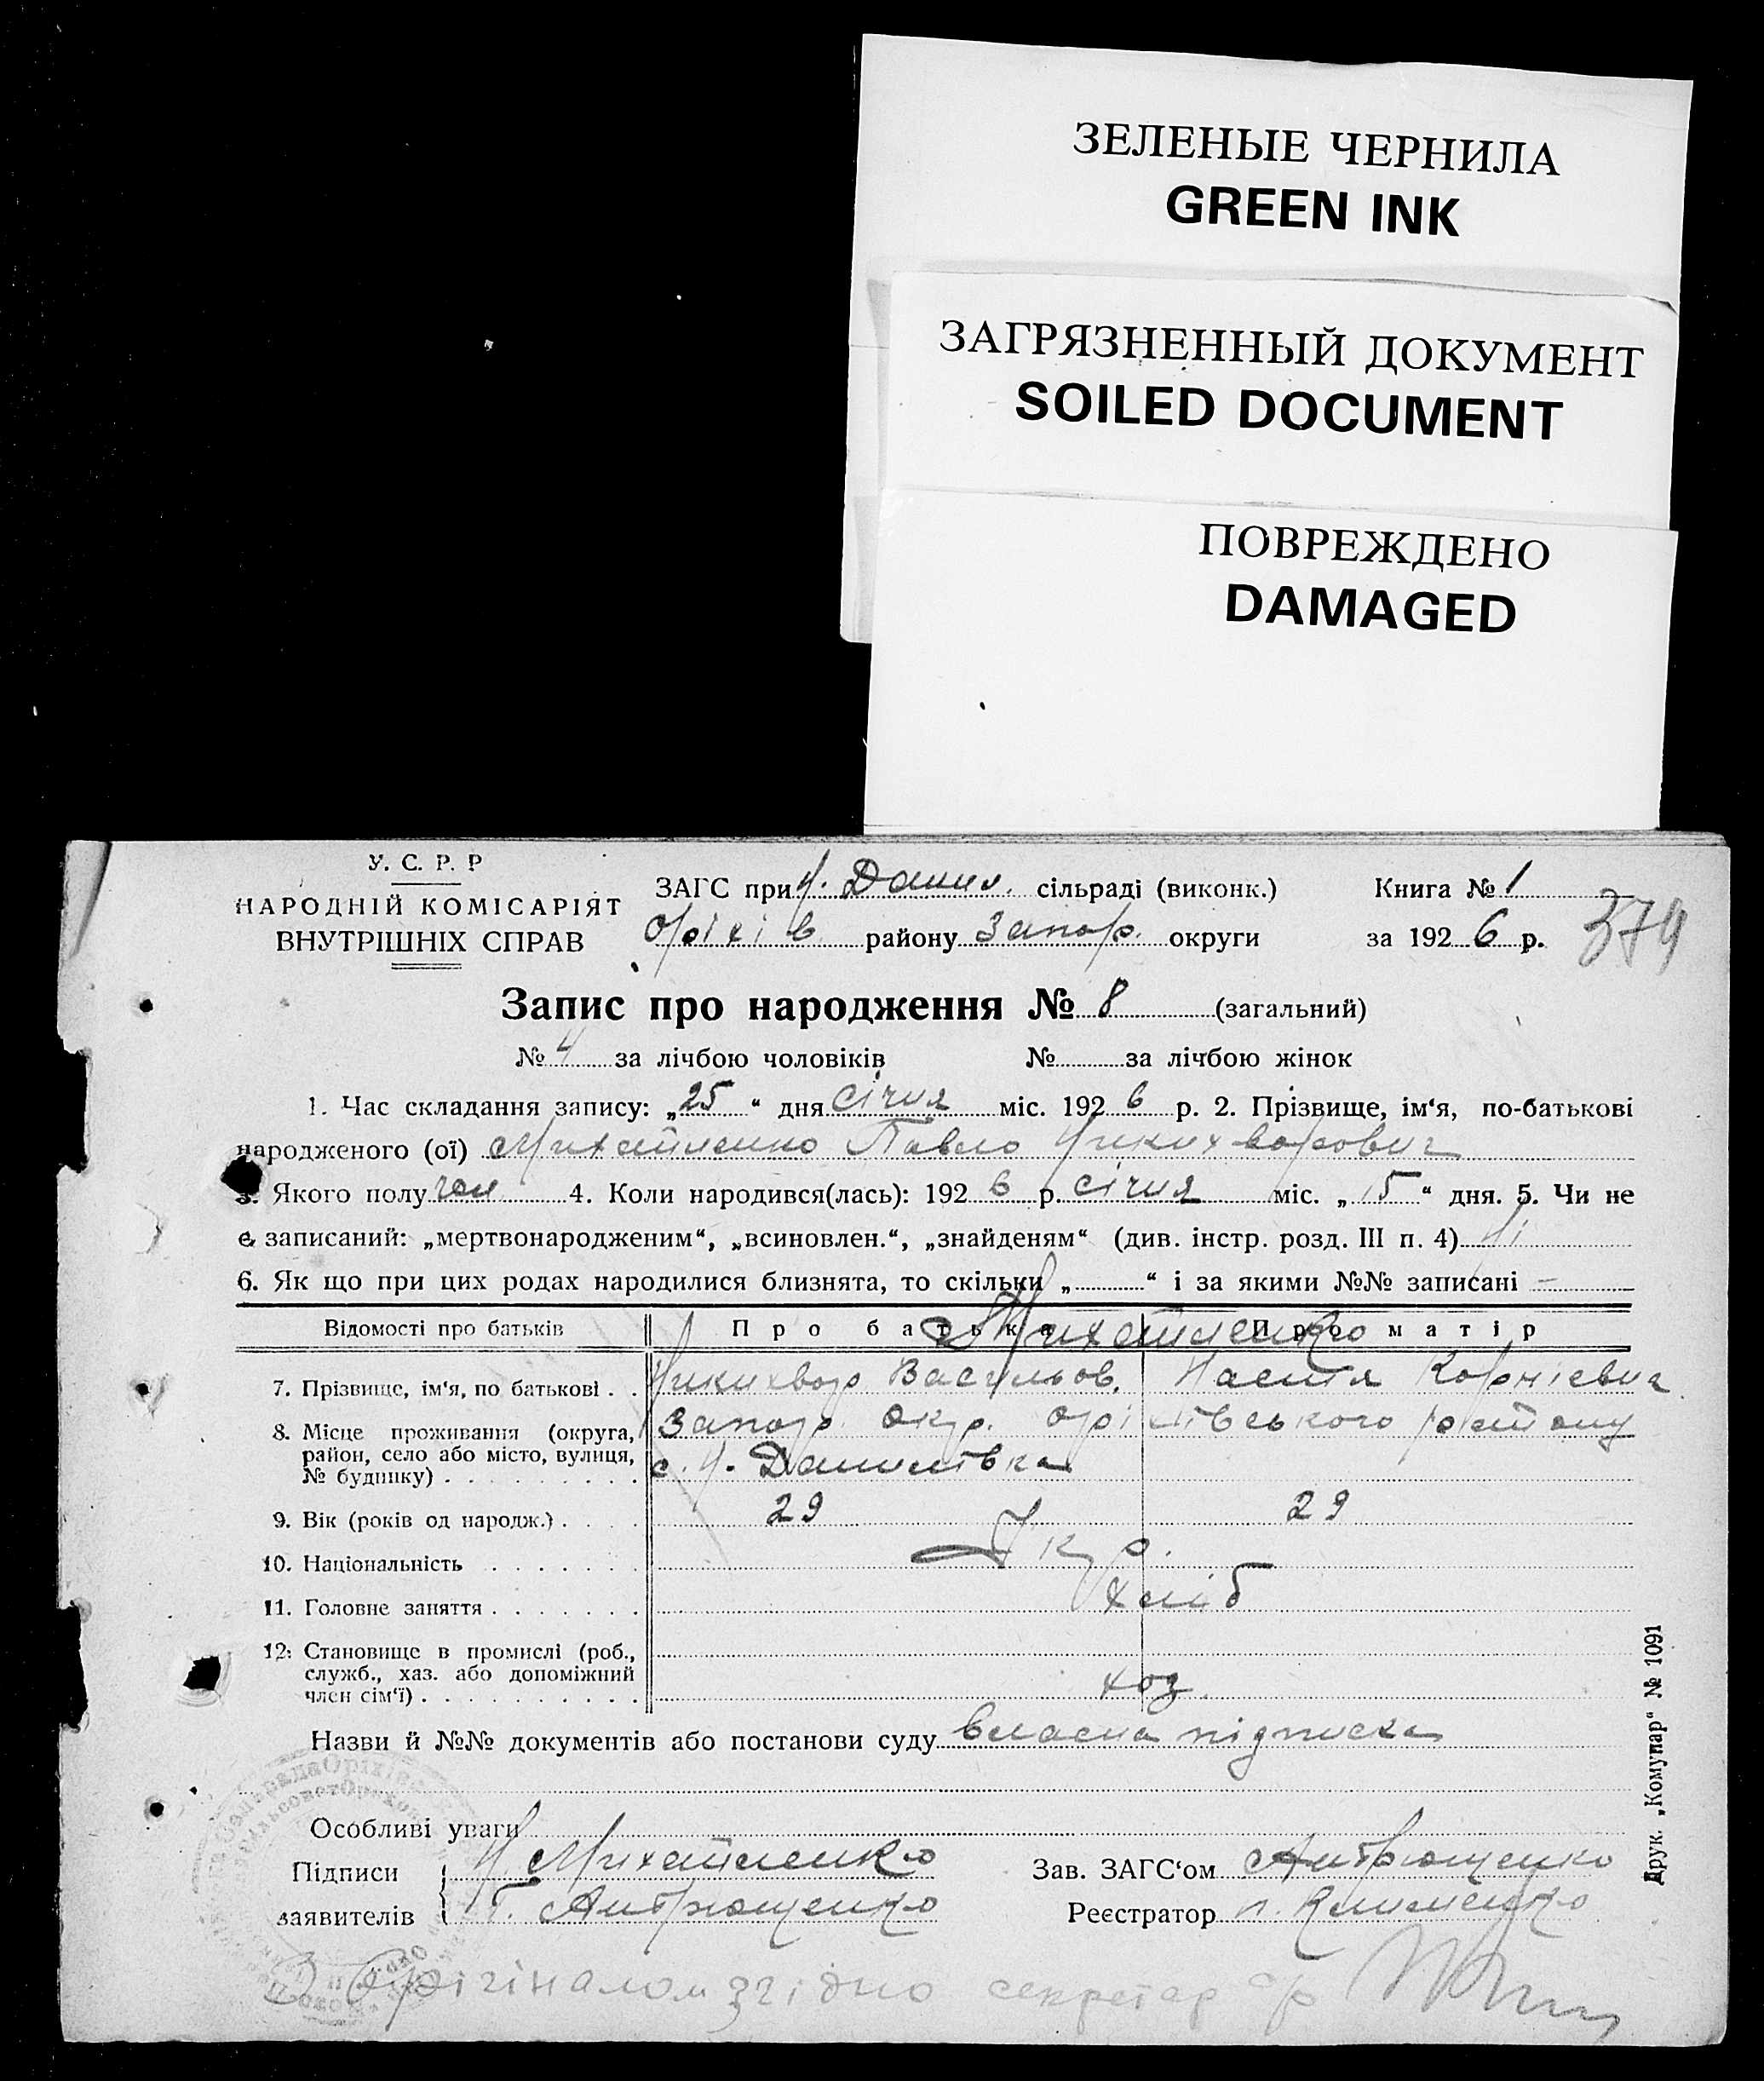 ЗЕЛЕНЫЕ ЧЕРНИЛА
GREEN INK
ЗАГРЯЗНЕННЫЙ ДОКУМЕНТ
SOILED DOCUMENT
ПОВРЕЖДЕНО
DAMAGED
У. С. Р. Р
НАРОДНІЙ КОМІСАРІЯТ
ВНУТРІШНІХ СПРАВ
ЗАГС при Н. Данил. сільраді (виконк.)
Оріхів району Запор. округи
Книга № 1
за 1926 р.
374
Запис про народження № 8 (загальний)
№ 4 за лічбою чоловіків № за лічбою жінок
1. Час складання запису: „25“ дня січня міс. 1926 р. 2. Прізвище, ім‘я, по-батькові
народженого (ої) Михайленко Павло Никихворович
3. Якого полу чол 4. Коли народився(лась): 1926 р. січня міс. „15“ дня. 5. Чи не
є записаний: „мертвонародженим“, „всиновлен.“, „знайденям“ (див. інстр. розд. III п. 4) Ні
6. Як що при цих родах народилися близнята, то скільки „ “ і за якими №№ записані —
Відомості про батьків Про батька Про матір
Михайленко
7. Прізвище, ім‘я, по батькові . . Никихвор Васильов. Настя Корнієвна
8. Місце проживання (округа, район, село або місто, вулиця, № будинку) Запор. окр. Оріхівського району
с. Н. Данилівка
9. Вік (років од народж.) 29 29
10. Національність Укр.
11. Головне заняття хліб
12. Становище в промислі (роб., служб., хаз. або допоміжний член сім‘ї) хоз.
Назви й №№ документів або постанови суду власна підписка
Особливі уваги
Підписи заявителів Н Михайленко
Г. Антрющенко
Зав. ЗАГС‘ом Антрющенко
Реєстратор П. Клименко
З Орігіналом згідно секретар с/р
Друк. „Комунар“ № 1091